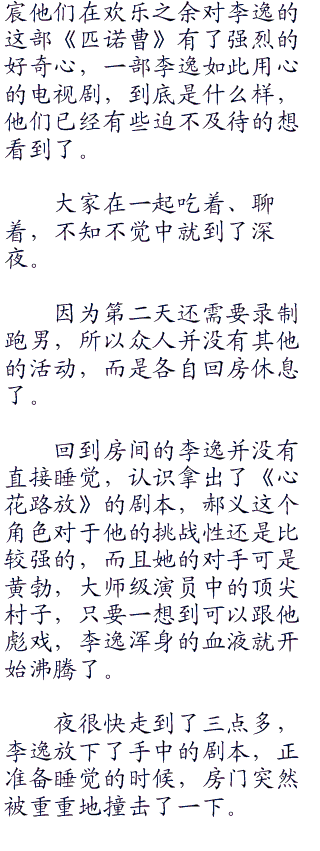 宸他们在欢乐之余对李逸的
这部《匹诺曹》有了强烈的
好奇心，一部李逸如此用心
的电视剧，到底是什么样，
他们已经有些迫不及待的想
看到了。
大家在一起吃着、聊
着，不知不觉中就到了深
夜。
因为第二天还需要录制
跑男，所以众人并没有其他
的活动，而是各自回房休息
了。
回到房间的李逸并没有
直接睡觉，认识拿出了《心
花路放》的剧本，郝义这个
角色对于他的挑战性还是比
较强的，而且她的对手可是
黄勃，大师级演员中的顶尖
村子，只要一想到可以跟他
彪戏，李逸浑身的血液就开
始沸腾了。
夜很快走到了三点多，
李逸放下了手中的剧本，正
准备睡觉的时候，房门突然
被重重地撞击了一下。